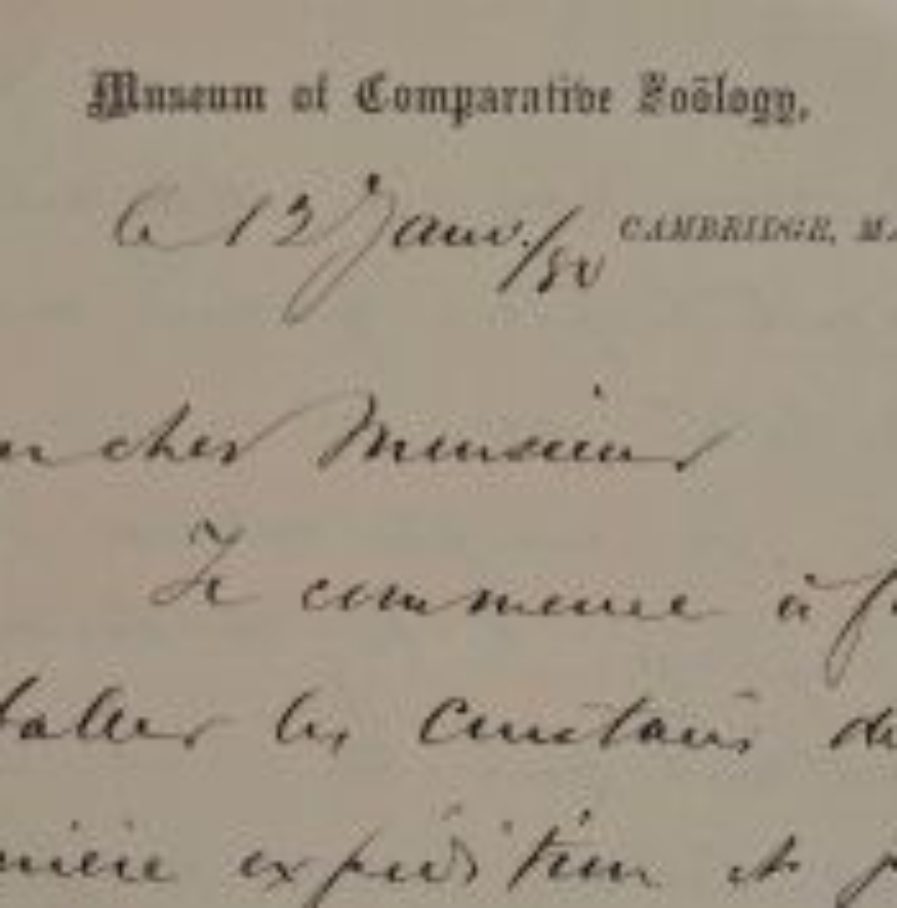 Museum of Comparative Zoölogy,
le 13 Janv./80 CAMBRIDGE, MA
n cher Monsieur
Je commence à f
taller les Crustacés de
nière expédition et p